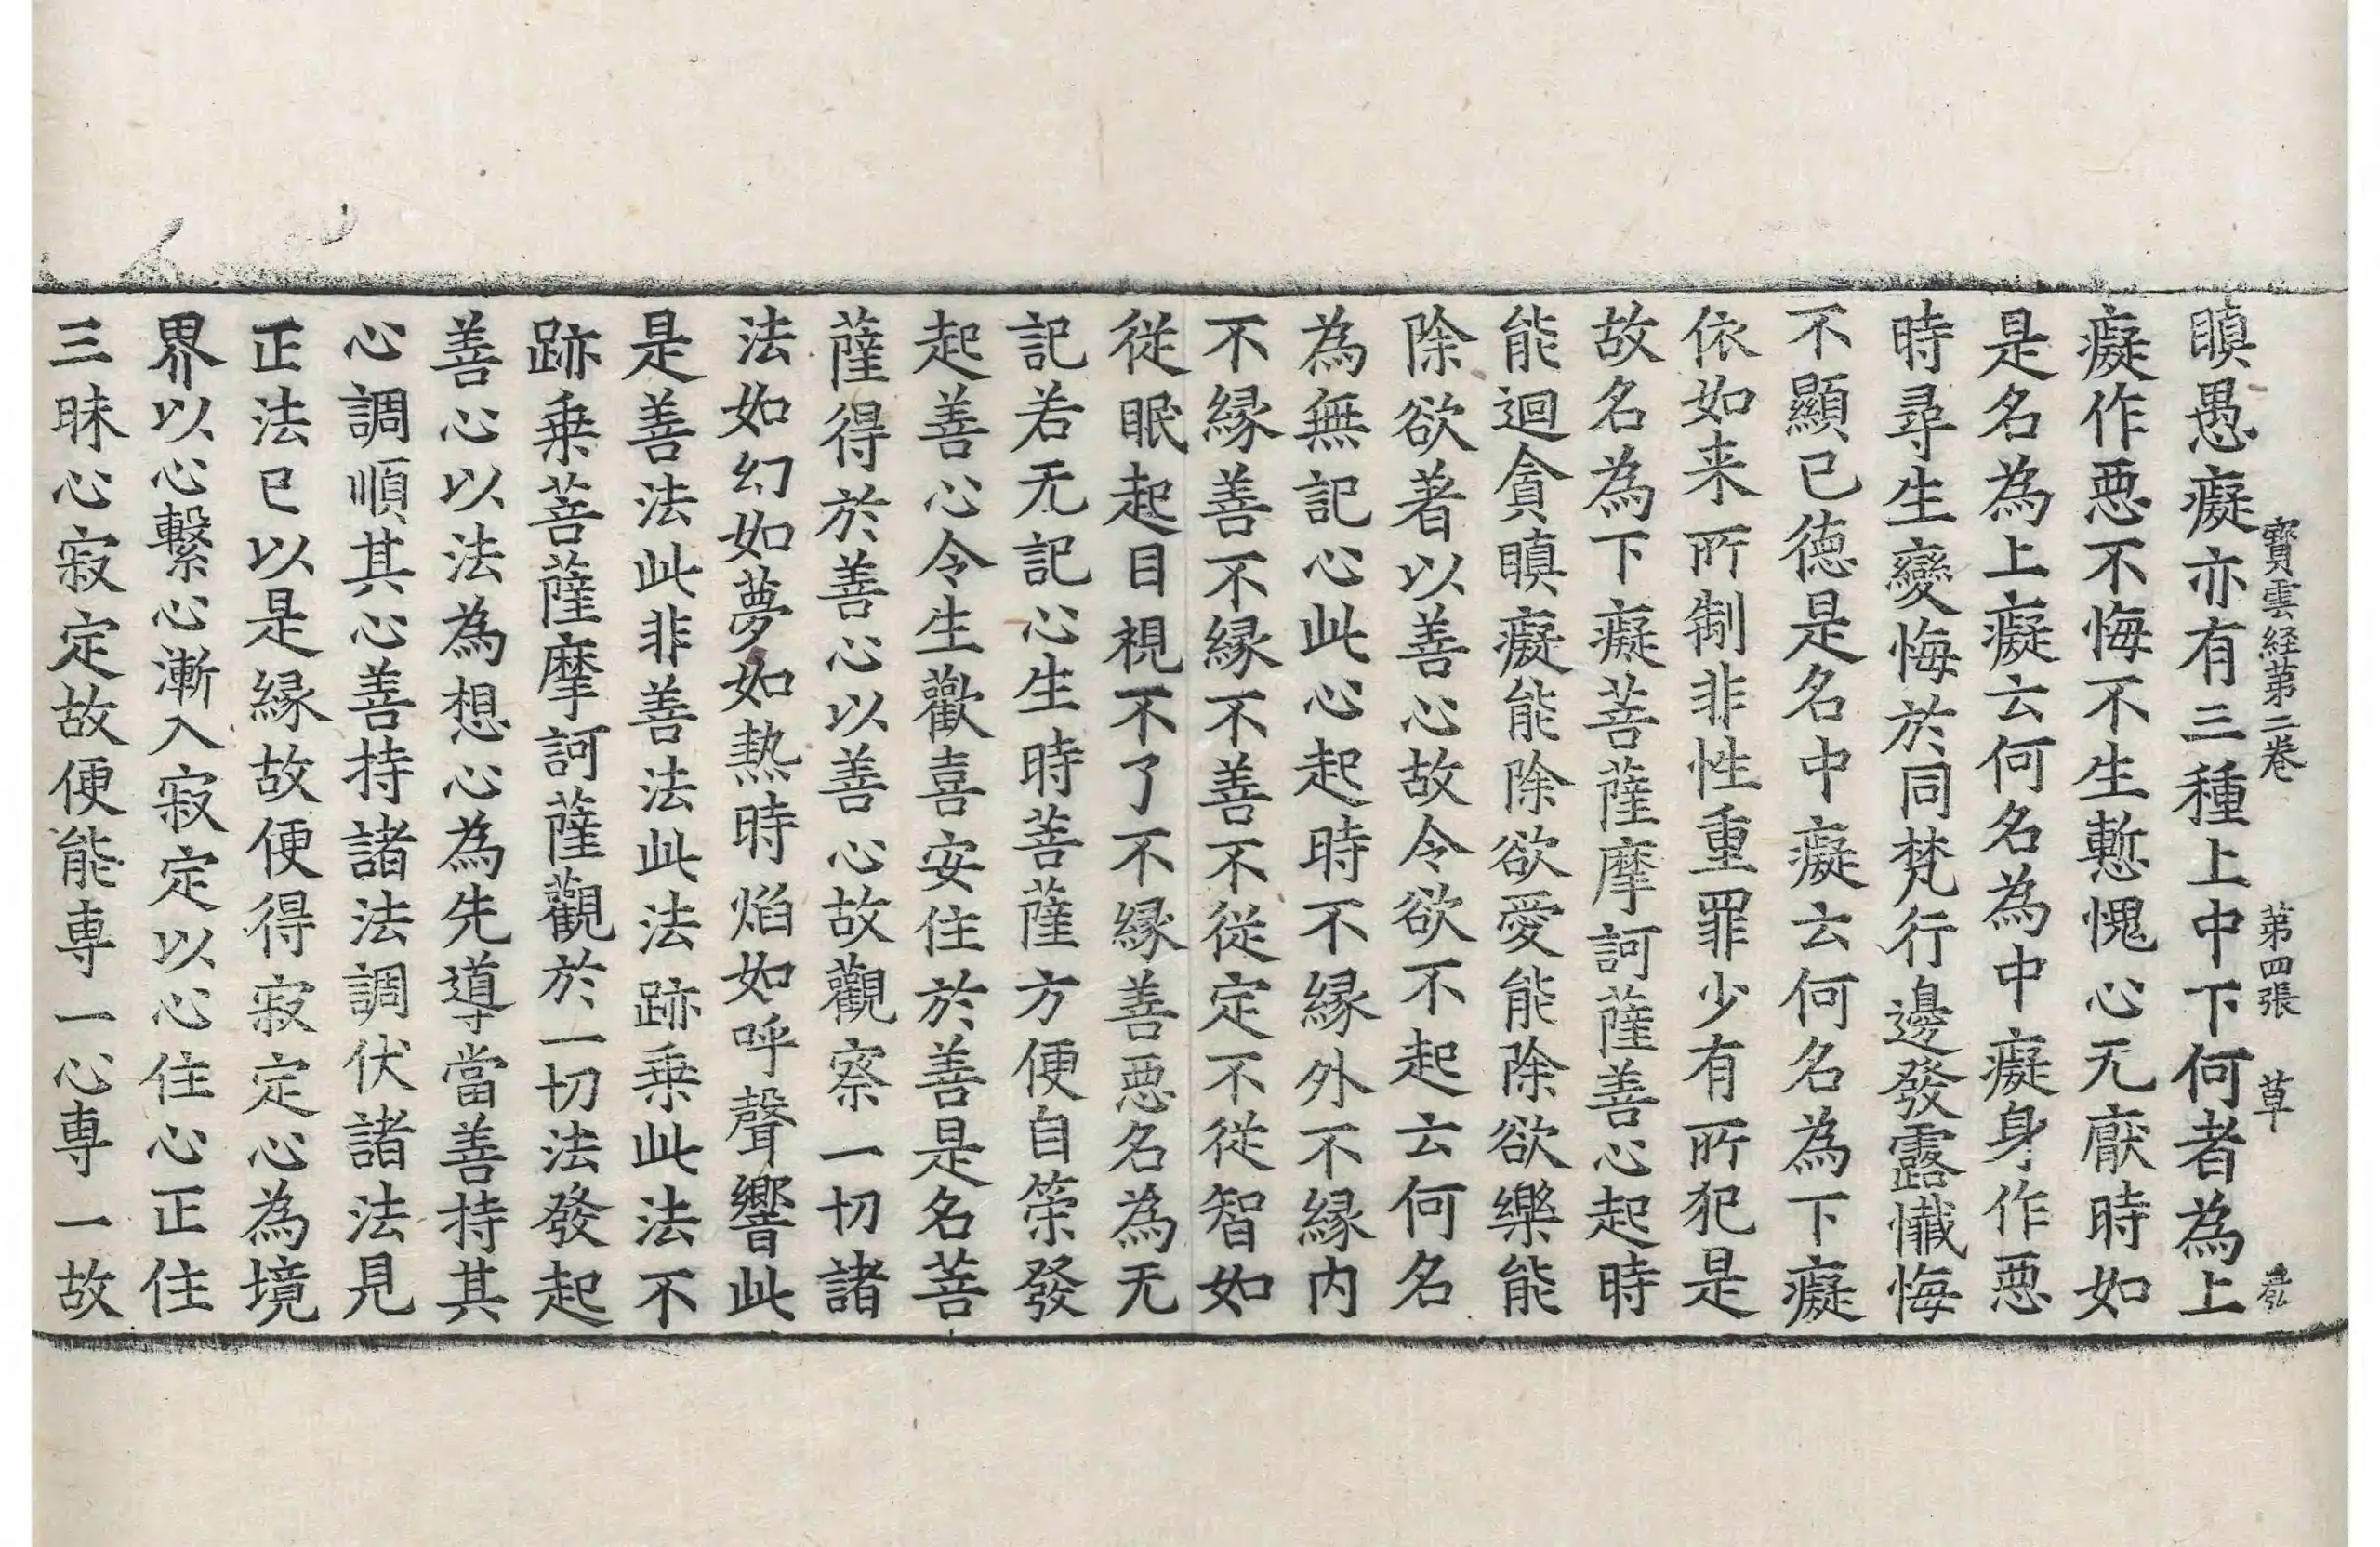 寳雲経苐二卷 苐四張 草
瞋愚癡亦有三種上中下何者為上
癡作惡不悔不生慙愧心无厭時如
是名為上癡云何名為中癡身作惡
時尋生變悔於同梵行邊發露懺悔
不顯已德是名中癡云何名為下癡
依如来所制非性重罪少有所犯是
故名為下癡菩薩摩訶薩善心起時
能迴貪瞋癡能除欲愛能除欲樂能
除欲著以善心故令欲不起云何名
為無記心此心起時不緣外不緣內
不緣善不緣不善不從定不從智如
從眠起目視不了不緣善惡名為无
記若无記心生時菩薩方便自策發
起善心令生歡喜安住於善是名菩
薩得於善心以善心故觀察一切諸
法如幻如夢如熱時焰如呼聲響此
是善法此非善法此法跡乗此法不
跡乗菩薩摩訶薩觀於一切法發起
善心以法為想心為先導當善持其
心調順其心善持諸法調伏諸法見
正法已以是緣故便得寂定心為境
界以心繫心漸入寂定以心住心正住
三昧心寂定故便能專一心專一故